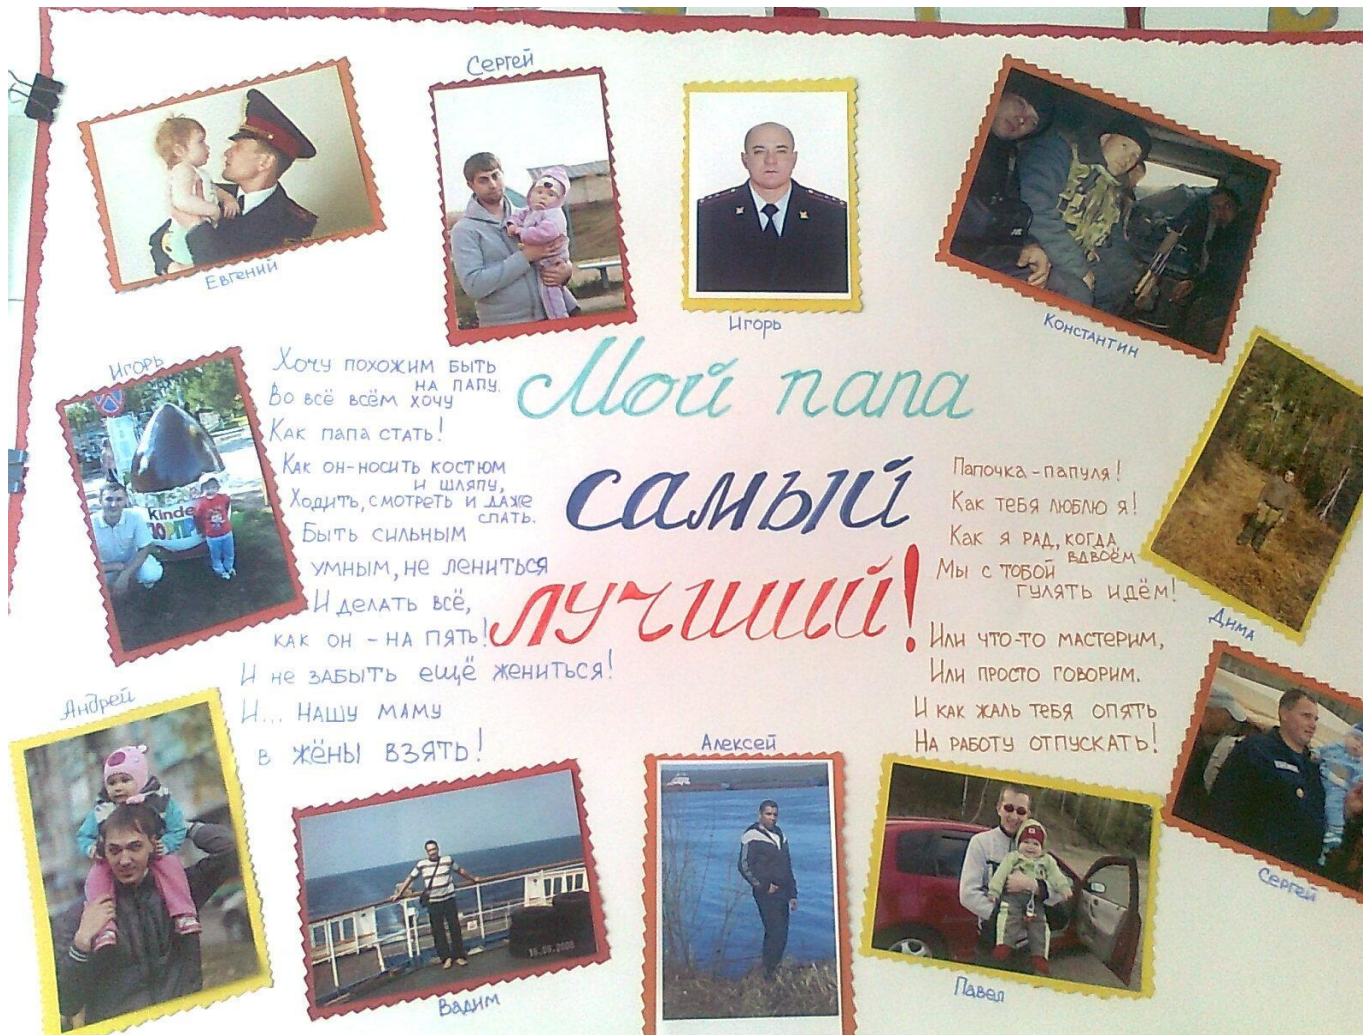 Сергей
Евгений
Игорь
Константин
Игорь
Мой папа
самый
лучший!
Хочу похожим быть
на папу.
Во всё всём хочу
Как папа стать!
Как он-носить костюм
и шляпу,
Ходить, смотреть и даже
спать.
Быть сильным
умным, не лениться
И делать всё,
как он - на пять!
И не забыть ещё жениться!
И... нашу маму
в жёны взять!
Папочка-папуля!
Как тебя люблю я!
Как я рад, когда
вдвоём
Мы с тобой
гулять идём!
Или что-то мастерим,
Или просто говорим.
И как жаль тебя опять
На работу отпускать!
Дима
Андрей
Алексей
Сергей
Вадим
Павел
Kinde